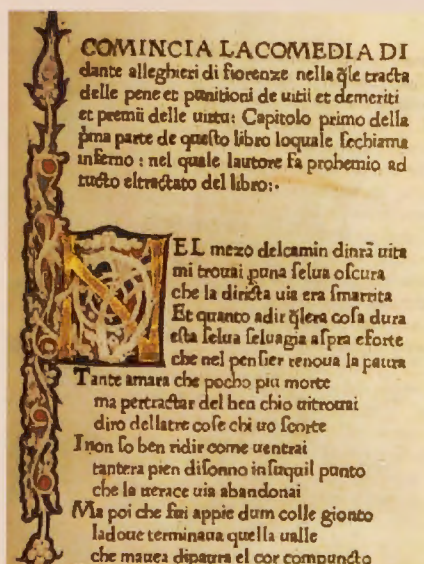 COMINCIA LACOMEDIA DI
dante alleghieri di fiorenze nella q̃le tracta
delle pene et punitioni de uitii et demeriti
et premii delle uirtu: Capitolo primo della
p̃ma parte de queſto libro loquale ſechiama
inferno : nel quale lautore fa prohemio ad
tucto eltractato del libro:·
NEL mezo delcamin dinr̃a uita
mi trouai puna ſelua oſcura
che la diricta uia era ſmarrita
Et quanto adir q̃lera coſa dura
eſta ſelua ſeluagia aſpra eforte
che nel penſier renoua la paura
Tante amara che pocho piu morte
ma pertractar del ben chio uitrouai
diro dellatre coſe chi uo ſcorte
Inon ſo ben ridir come uentrai
tantera pien diſonno inſuquil punto
che la uerace uia abandonai
Ma poi che fui appie dum colle gionto
ladoue terminaua quella ualle
che mauea dipaura el cor compuncto